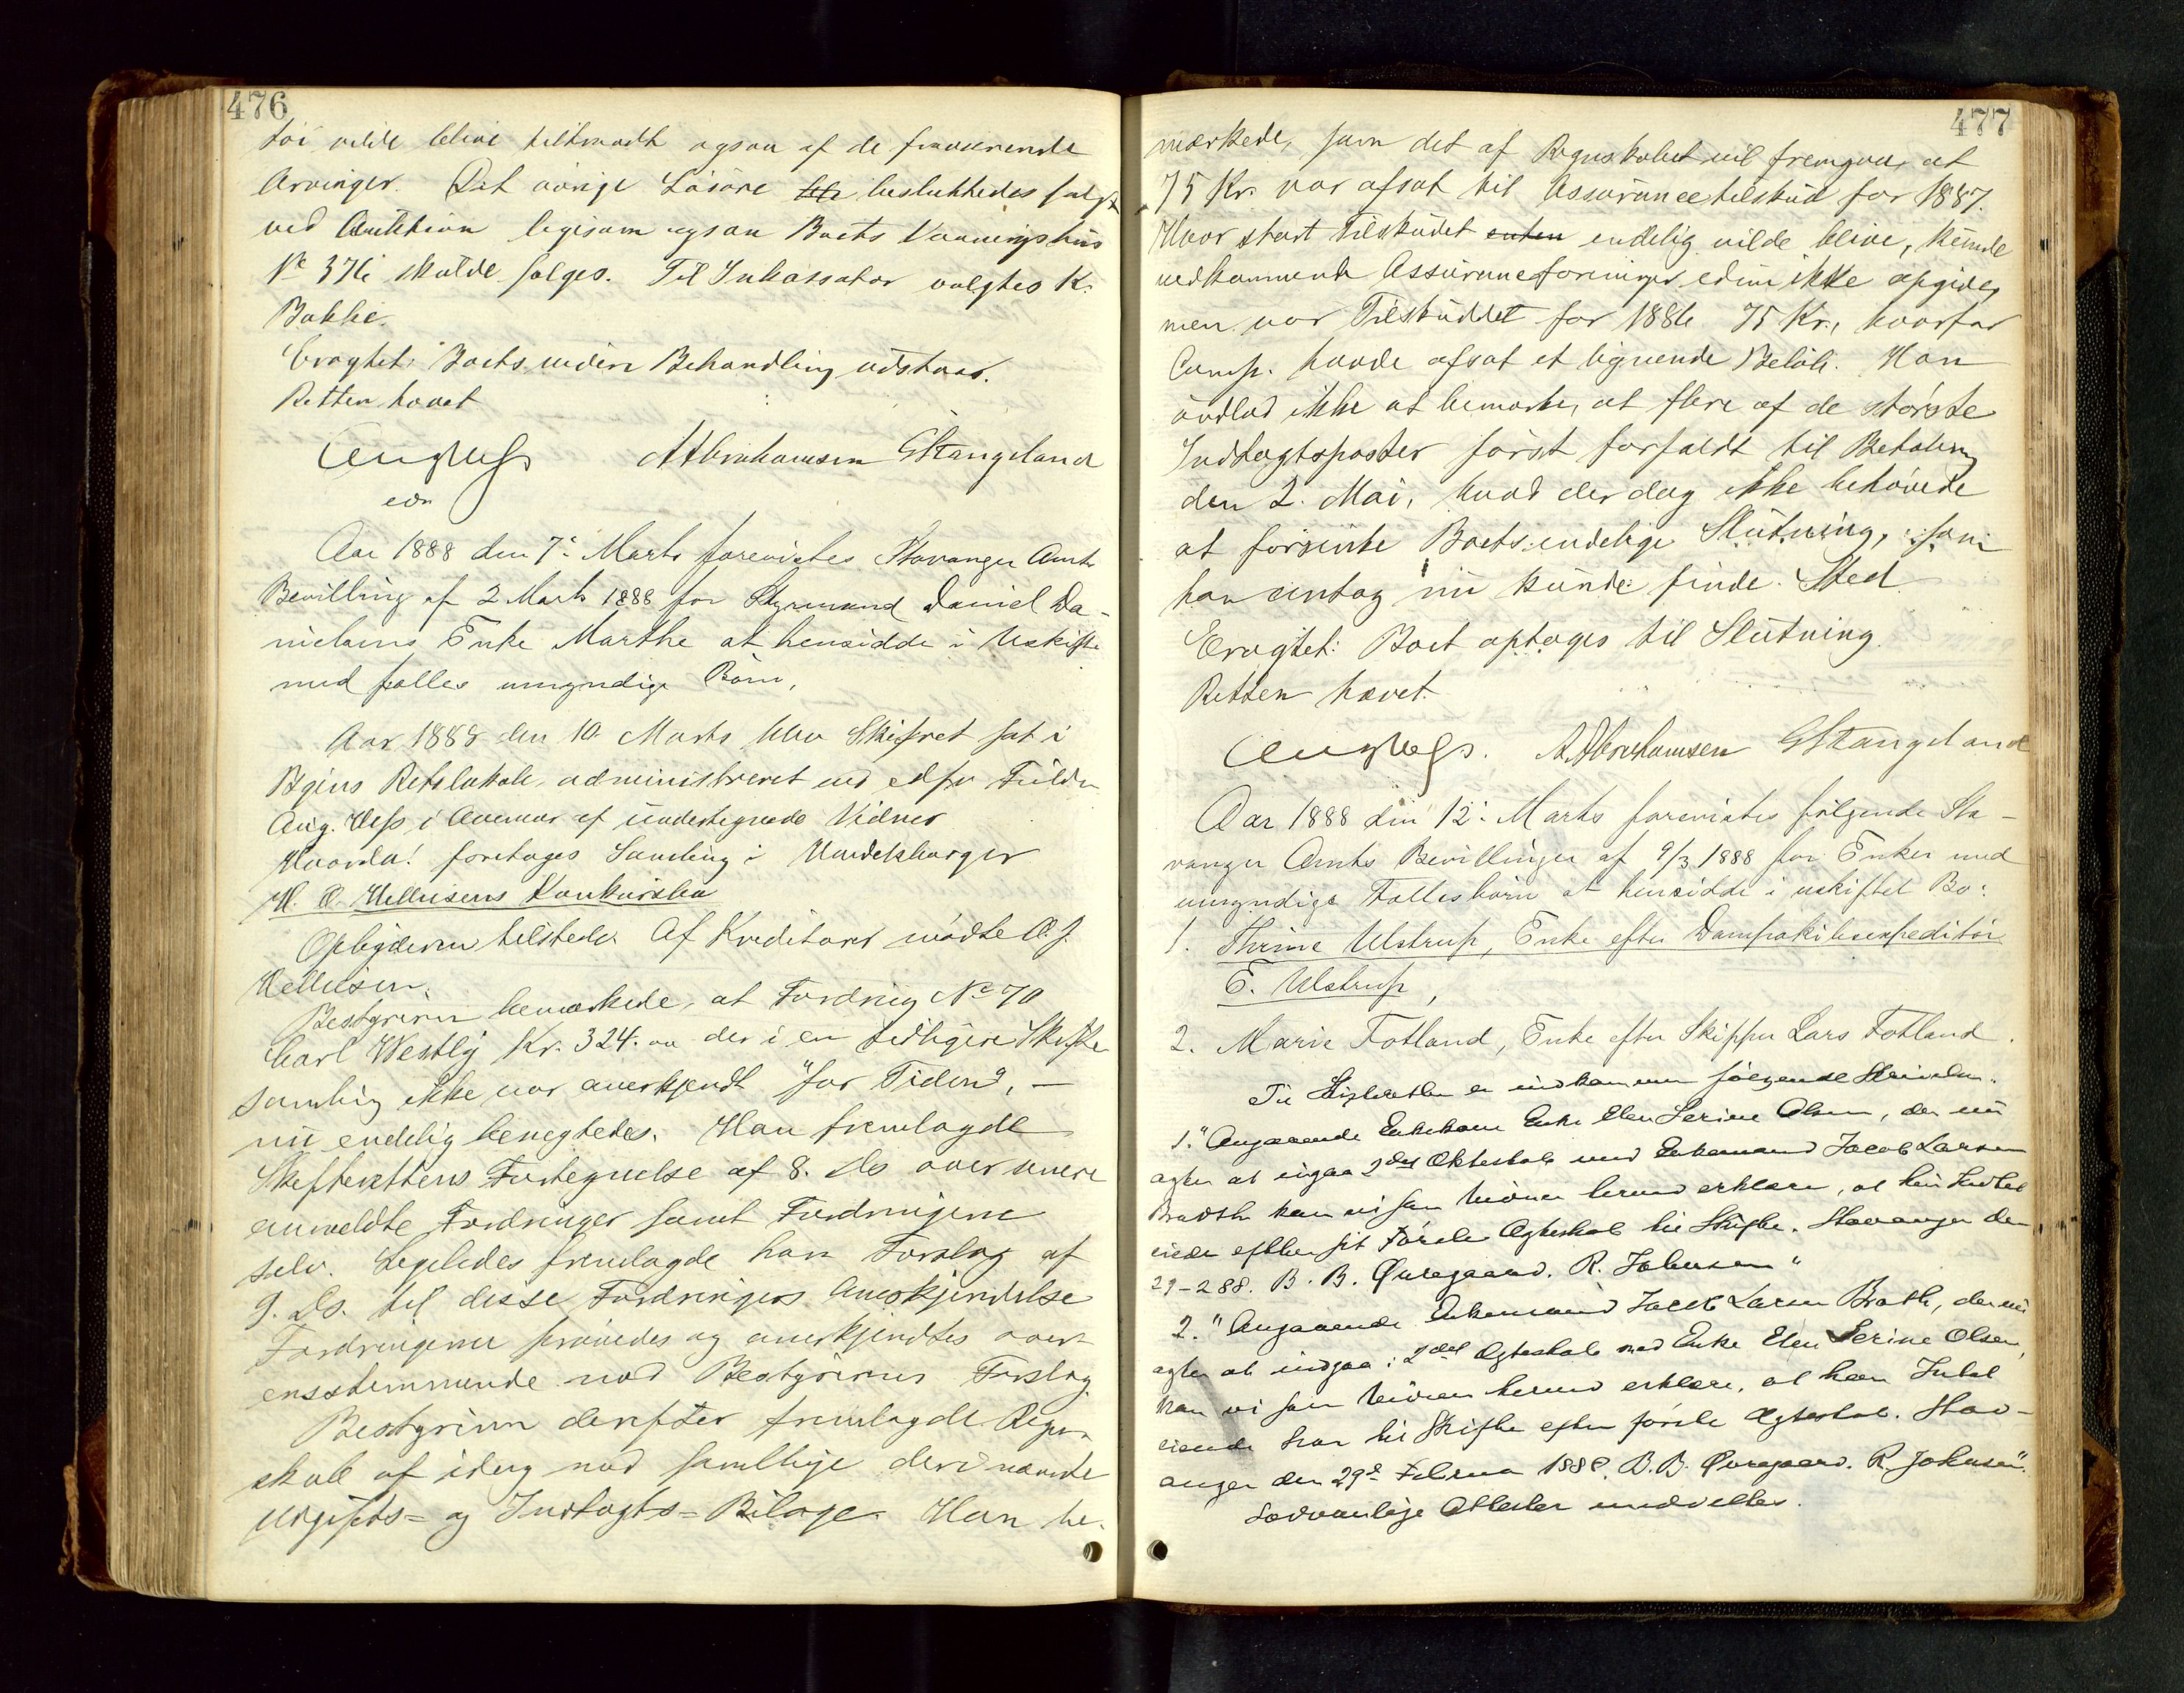 476
töi vilde blive tiltraadt ogsaa af de fraværende
Arvinger. Det øvrige Løsøre besluttedes solgt
ved Auktion ligesom ogsaa Boets Vaaningshus
No 376 skulde sælges. Til Inkassator valgtes K.
Bakke.
Eragtet: Boets videre Behandling udstaar.
Retten hævet
Aug Hess A Abrahamsen GStangeland
edn
Aar 1888 den 7de Marts forevistes Stavanger Amts
Bevilling af 2 Marts 1888 for Styrmand Daniel Da-
nielsens Enke Marthe at hensidde i Uskifte
med fælles umyndige Börn,
Aar 1888 den 10 Marts blev Skifteret sat i
Byens Retslokale, administreret ved edsv Fuldm
Aug. Hess i Overvær af undertegnede Vidner
Hvorda! foretoges Samling i Handelsborger
H. O. Hellisens Konkursbo
Opbyderen tilstede. Af Kreditorer mødte O. J.
Hellisen.
Bestyreren bemærkede, at Fordring No 70
Carl Westly Kr. 324.00 der i en tidligere Skifte
samling ikke var anerkjendt "for Tiden", —
nu endelig benegtedes. Han fremlagde
Skifterettens Fortegnelse af 8. ds over senere
anmeldte Fordringer samt Fordringerne
selv. Ligeledes fremlagde han Forslag af
9. ds. til disse Fordringers Anerkjendelse
Fordringerne prøvedes og anerkjendtes over-
ensstemmende med Bestyrerens Forslag.
Bestyreren derefter fremlagde Regn-
skab af idag med samtlige deri nævnte
Udgifts= og Indtægts=Bilage. Han be-
477
mærkede, som det af Regnskabet vil fremgaa, at
75 Kr. var afsat til Assurancetilskud for 1887.
Hvor stort Tilskudet enten endelig vilde blive, kunde
vedkommende Assuranceforeninger endnu ikke opgive,
men var Tilskuddet for 1886 75 Kr., hvorfor
Comp. havde afsat et lignende Beløb. Han
undlod ikke at bemærke, at flere af de største
Indtægtsposter først forfaldt til Betaling
den 2. Mai, hvad der dog ikke behövede
at forsinke Boets endelige Slutning, som
han antog nu kunde finde Sted.
Eragtet: Boet optages til Slutning.
Retten hævet.
Aug Hess. A. Abrahamsen GStangeland
Aar 1888 den 12. Marts forevistes følgende Sta-
vanger Amts Bevillinger af 9/3 1888 for Enker med
umyndige Fællesbörn at hensidde i uskiftet Bo:
1. Thrine Ulstrup, Enke efter Dampskibsexpeditör
E. Ulstrup,
2. Marie Fotland, Enke efter Skipper Lars Fotland.
Til Skifteretten er indkommen følgende Skrivelser
1. "Angaaende Enkekone Enke Elen Serine Olsen, der nu
agter at ingaa 2det Ekteskab med Enkemand Jacob Larsen
Bradth kan vi som Vidner herved erklære, at hun Intet
eiede efter sit Første Ægteskab til Skifte. Stavanger den
29-2 88. B. B. Øvregaard. R. Johnsen"
2. "Angaaende Enkemand Jacob Larsen Brath, der nu
agter at indgaa i 2det Ægteskab med Enke Elen Serine Olsen,
kan vi som Vidner herved erklære, at han Intet
eiende har til Skifte efter første Ægteskab. Stav-
anger den 29de Februar 1888. B. B. Øvregaard. R. Johnsen".
Sædvanlige Attester meddeltes.